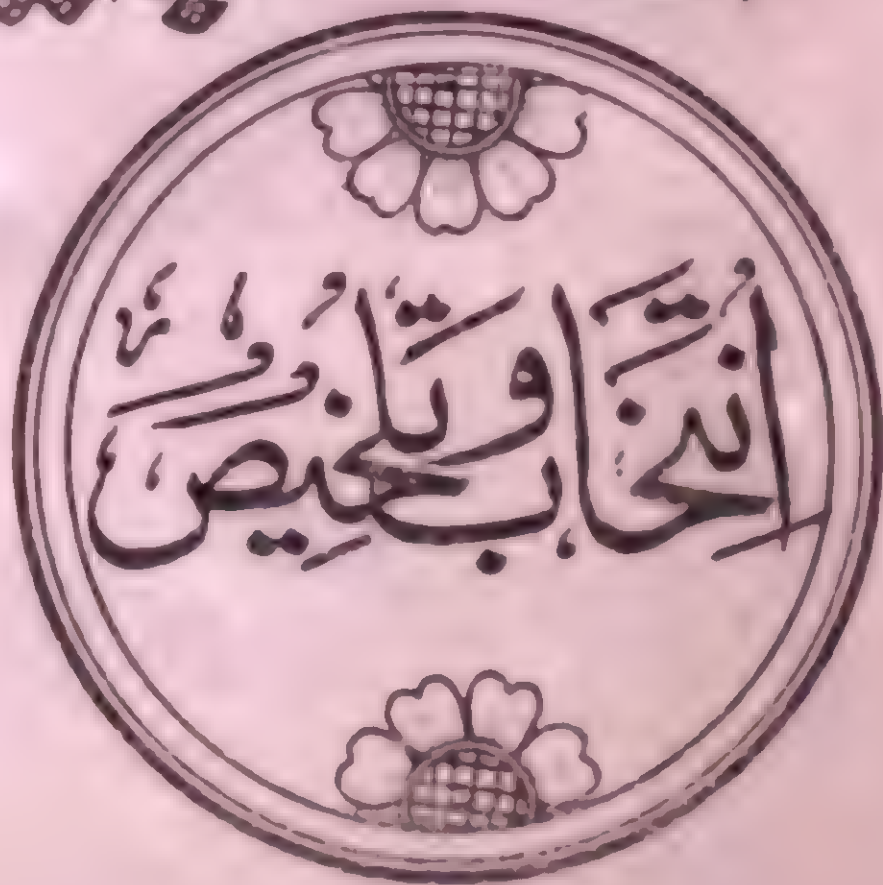 اِنْتِخَابٌ وَتَلْخِيْصٌ